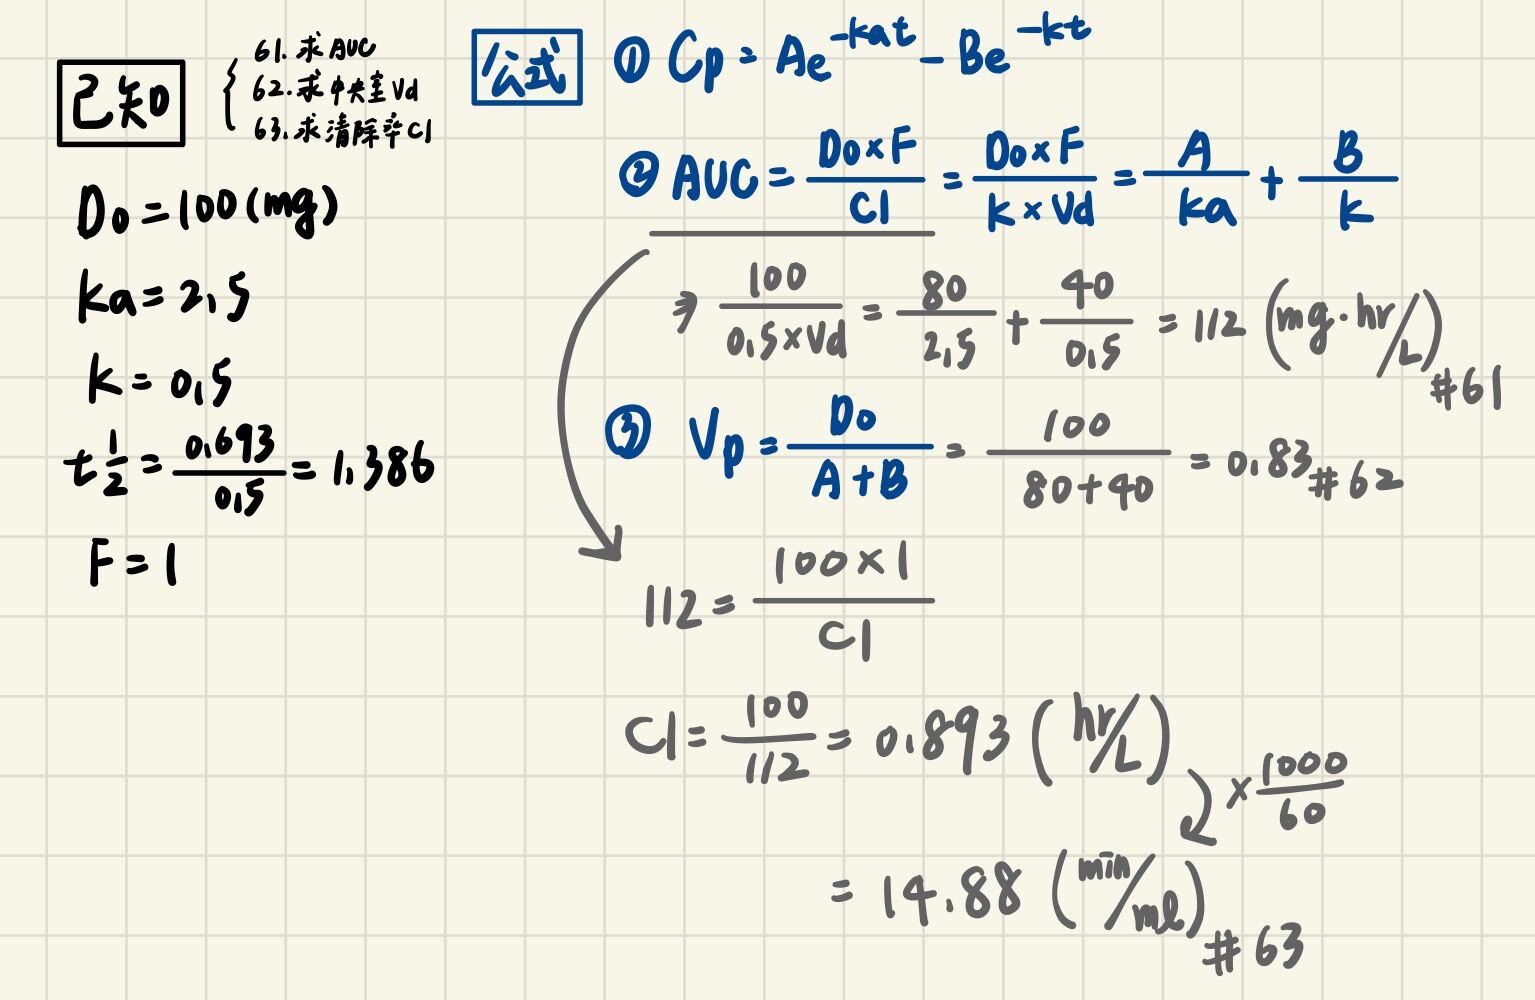 已知
61. 求AUC
62. 求中央室Vd
63. 求清除率Cl
D0 = 100 (mg)
ka = 2.5
k = 0.5
t 1/2 = 0.693/0.5 = 1.386
F = 1
公式
① Cp = Ae^-kat - Be^-kt
② AUC = D0×F/Cl = D0×F/k×Vd = A/ka + B/k
⇒ 100/0.5×Vd = 80/2.5 + 40/0.5 = 112 (mg·hr/L) #61
③ Vp = D0/A+B = 100/80+40 = 0.83 #62
112 = 100×1/Cl
Cl = 100/112 = 0.893 (hr/L)
× 1000/60
= 14.88 (min/ml) #63